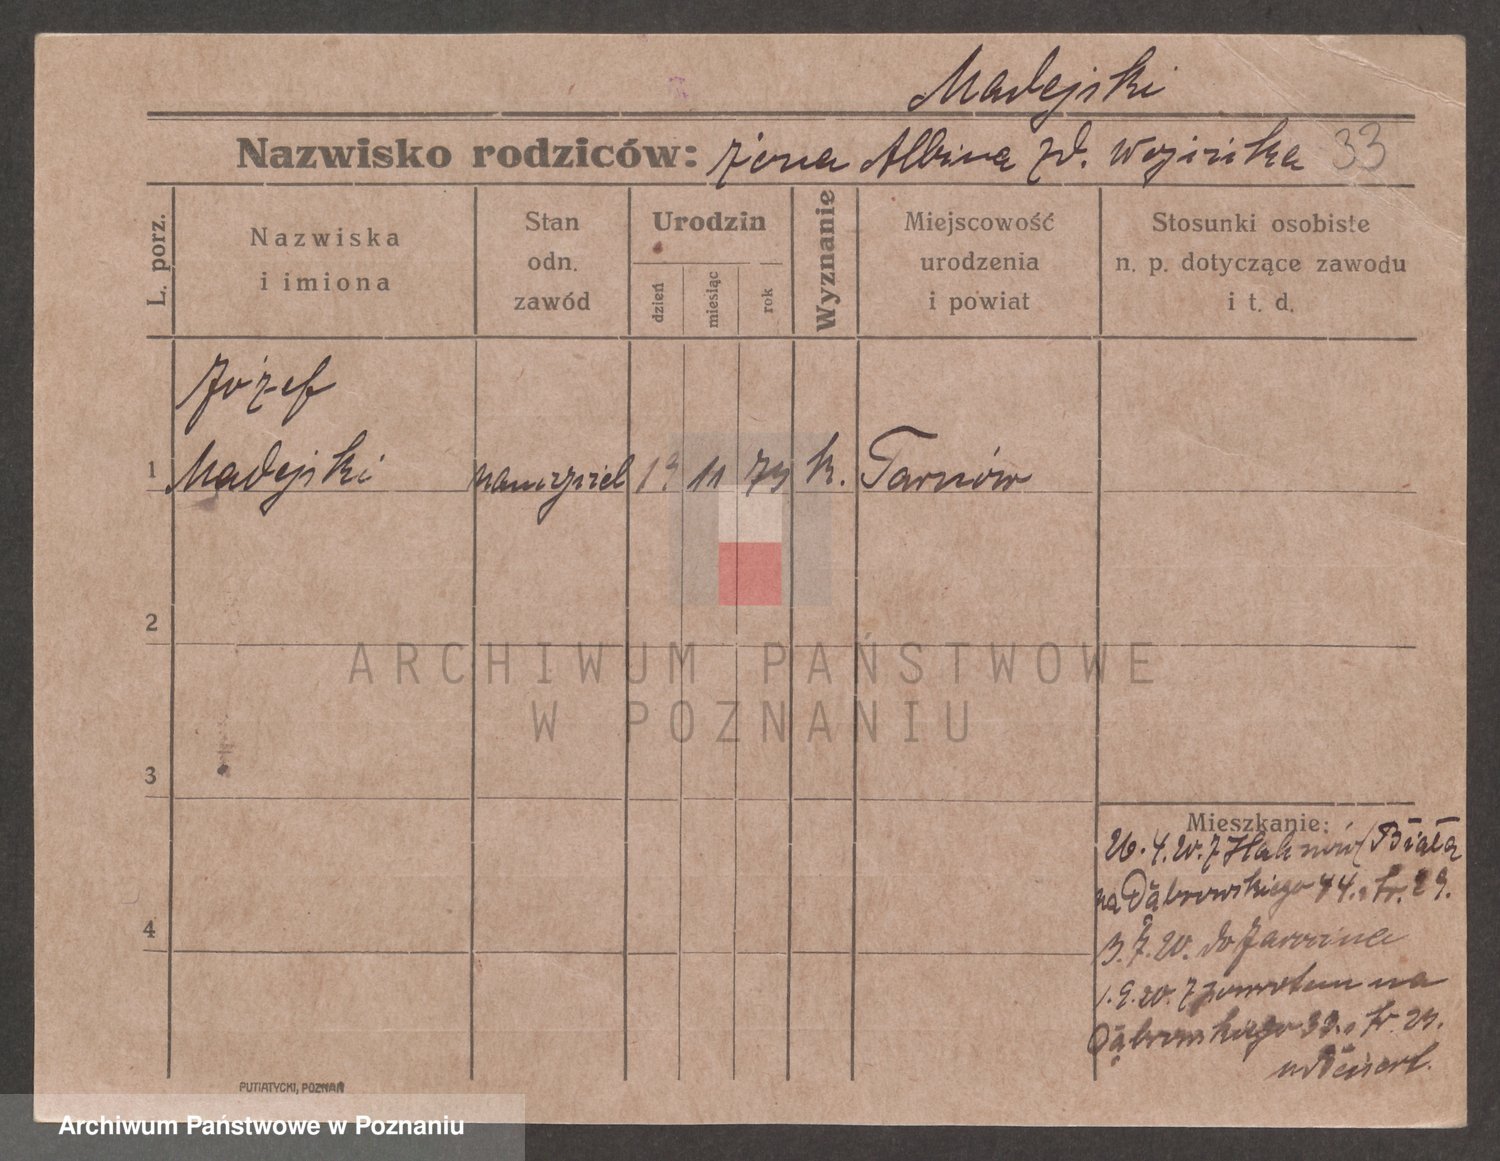 Madejski
Nazwisko rodziców: żona Albina zd. 33
L. porz.
Nazwiska
i imiona
Stan
odn.
zawód
Urodzin
dzień
miesiąc
rok
Wyznanie
Miejscowość
urodzenia
i powiat
Stosunki osobiste
n. p. dotyczące zawodu
i t. d.
Józef
1 Madejski 11 79 k. Tarnów
2
3
4
Mieszkanie:
26.4.20. z (Biała
na Dąbrowskiego 44. tr. 29.
3.7.20. do Jarocina
1.9.20. z powrotem na
Dąbrowskiego 33. tr. 29.
PUTIATYCKI, POZNAŃ
ARCHIWUM PAŃSTWOWE
W POZNANIU
Archiwum Państwowe w Poznaniu